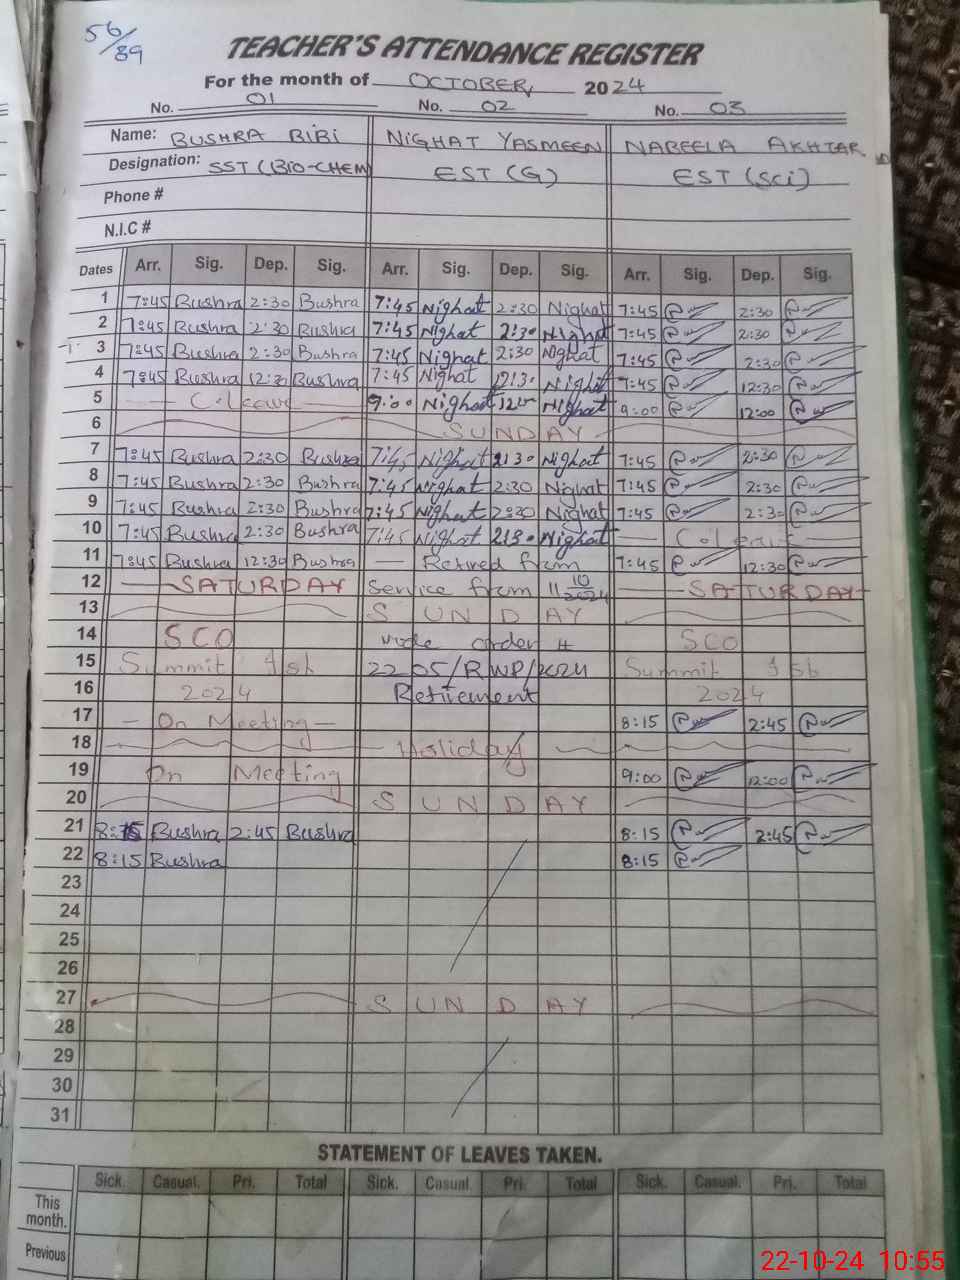 56/89
TEACHER'S ATTENDANCE REGISTER
For the month of OCTOBER, 2024
No. 01 No. 02 No. 03
Name: BUSHRA BIBI NIGHAT YASMEEN NABEELA AKHTAR
Designation: SST (BIO-CHEM) EST (G) EST (Sci)
Phone #
N.I.C #
Dates Arr. Sig. Dep. Sig. Arr. Sig. Dep. Sig. Arr. Sig. Dep. Sig.
1 7:45 Bushra 2:30 Bushra 7:45 Nighat 2:30 Nighat 7:45 2:30
2 7:45 Bushra 2:30 Bushra 7:45 Nighat 2:30 Nighat 7:45 2:30
3 7:45 Bushra 2:30 Bushra 7:45 Nighat 2:30 Nighat 7:45 2:30
4 7:45 Bushra 12:30 Bushra 7:45 Nighat 12:30 Nighat 7:45 12:30
5 C.Leave 9:00 Nighat 12:00 Nighat 9:00 12:00
6 SUNDAY
7 7:45 Bushra 2:30 Bushra 7:45 Nighat 2:30 Nighat 7:45 2:30
8 7:45 Bushra 2:30 Bushra 7:45 Nighat 2:30 Nighat 7:45 2:30
9 7:45 Bushra 2:30 Bushra 7:45 Nighat 2:30 Nighat 7:45 2:30
10 7:45 Bushra 2:30 Bushra 7:45 Nighat 2:30 Nighat C.Leave
11 7:45 Bushra 12:30 Bushra — Retired from 7:45 12:30
12 — SATURDAY Service from 11 10/2024 — SATURDAY —
13 SUNDAY
14 SCO vide order # SCO
15 Summit 1sb 2205/RWP/2024 Summit 1sb
16 2024 Retirement 2024
17 — On Meeting — 8:15 2:45
18 Holiday
19 On Meeting 9:00 12:00
20 SUNDAY
21 8:15 Bushra 2:45 Bushra 8:15 2:45
22 8:15 Bushra 8:15
23
24
25
26
27 SUNDAY
28
29
30
31
STATEMENT OF LEAVES TAKEN.
Sick. Casual. Pri. Total Sick. Casual. Pri. Total Sick. Casual. Pri. Total
This month.
Previous
22-10-24 10:55